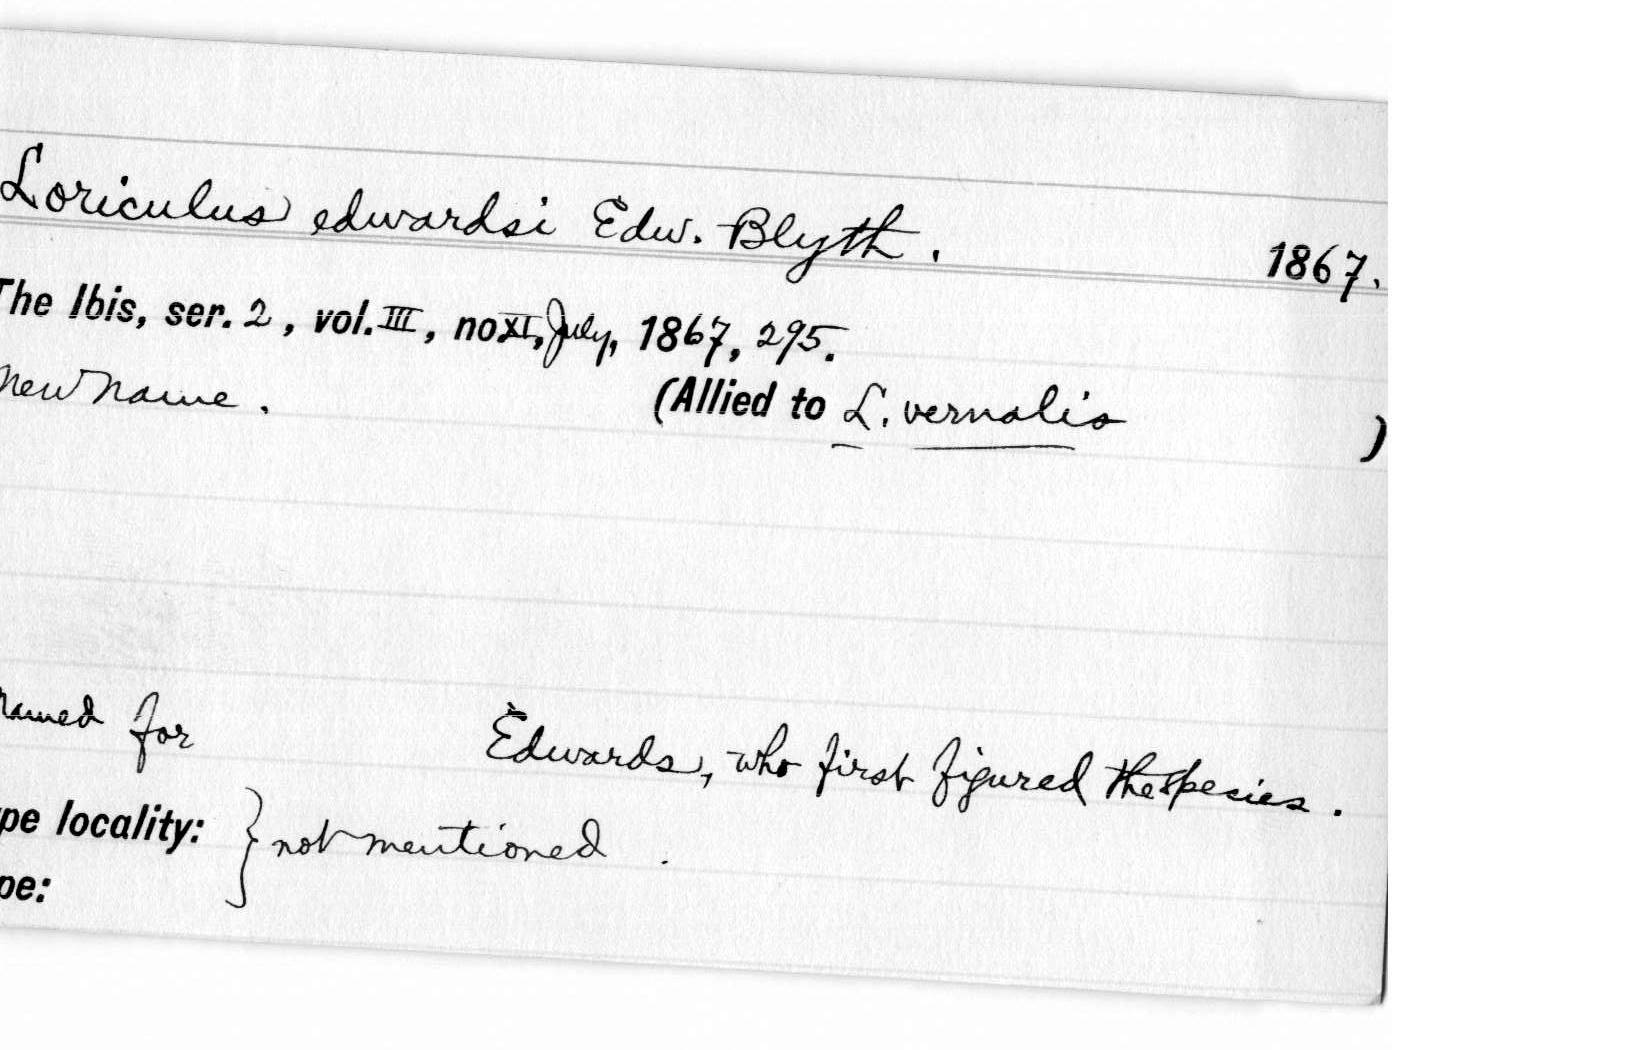 Loriculus edwardsi Edw. Blyth. 1867.
The Ibis, ser. 2, vol. III, no XI, July, 1867, 295.
New name. (Allied to L. vernalis )
named for Edwards, who first figured the spesies.
pe locality: } not mentioned.
pe: